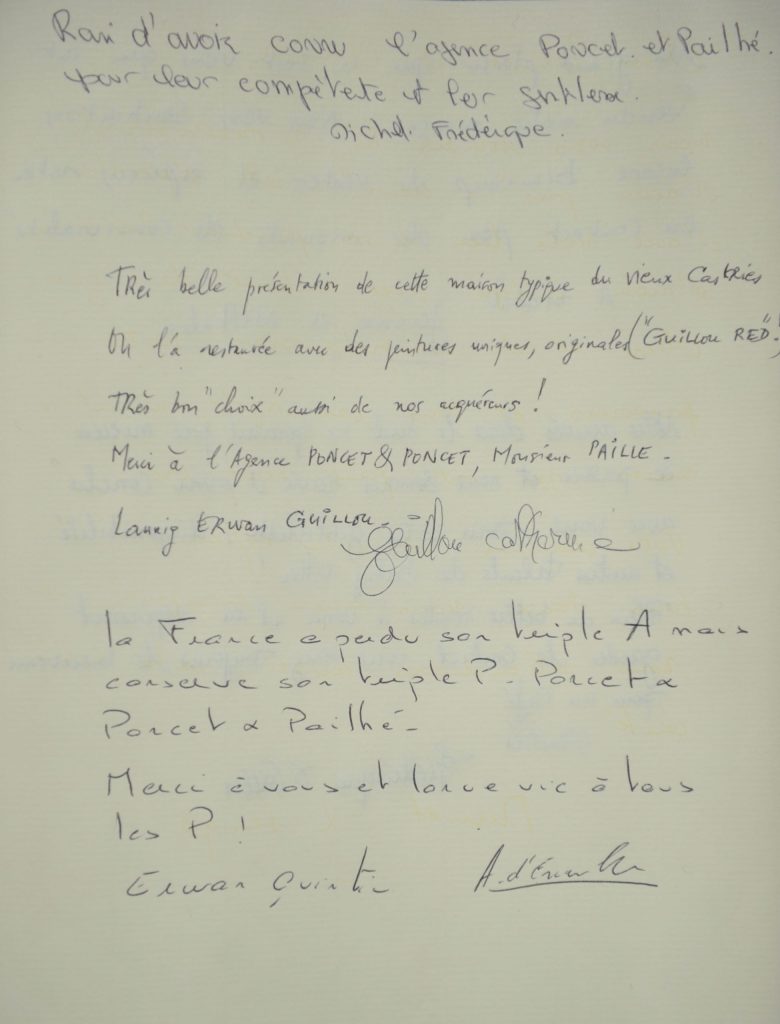 Ravi d'avoir connu l'agence Poncet et Pailhé.
pour leur compétence et leur gentillesse.
Michel Frédérique.
Très belle présentation de cette maison typique du vieux Castries
On l'a restaurée avec des peintures uniques, originales ("GUILLOU RED".
Très bon "choix" aussi de nos acquéreurs !
Merci à l'Agence PONCET & PONCET, Monsieur PAILLE -
Lannig ERWAN GUILLOU -
Guillou Catherine
la France a perdu son triple A mais
conserve son triple P - Poncet &
Poncet & Pailhé -
Merci à vous et longue vie à tous
les P !
Erwan Quintin